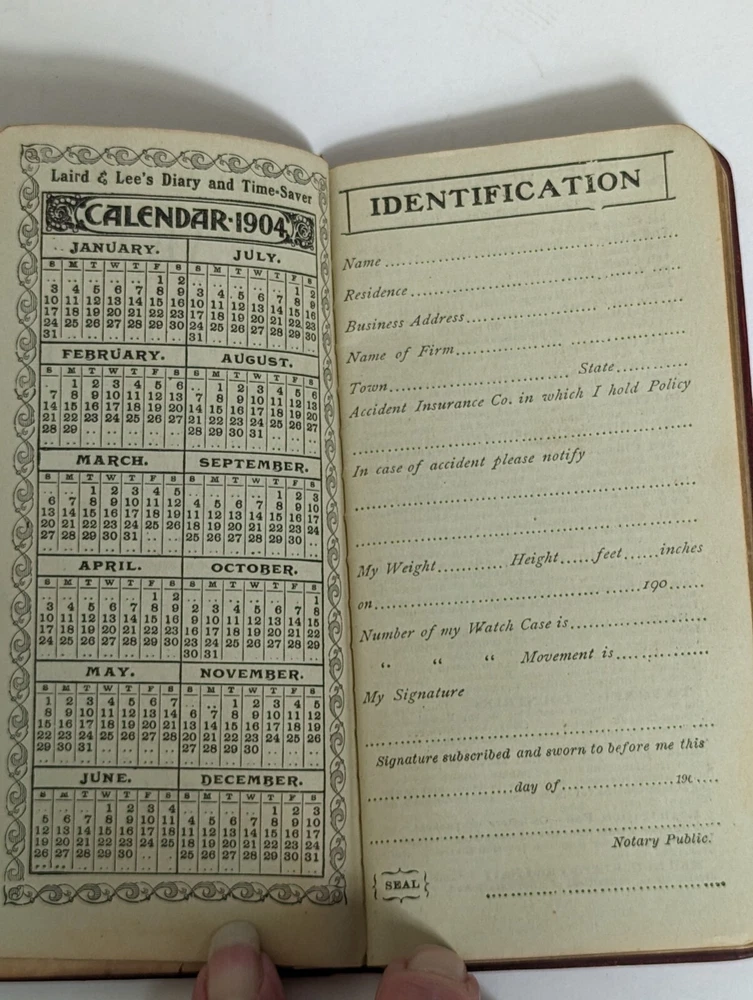 Laird & Lee's Diary and Time-Saver
CALENDAR·1904
JANUARY.
S M T W T F S
.. .. .. .. .. 1 2
3 4 5 6 7 8 9
10 11 12 13 14 15 16
17 18 19 20 21 22 23
24 25 26 27 28 29 30
31 .. .. .. .. .. ..
FEBRUARY.
S M T W T F S
.. 1 2 3 4 5 6
7 8 9 10 11 12 13
14 15 16 17 18 19 20
21 22 23 24 25 26 27
28 29 .. .. .. .. ..
MARCH.
S M T W T F S
.. .. 1 2 3 4 5
6 7 8 9 10 11 12
13 14 15 16 17 18 19
20 21 22 23 24 25 26
27 28 29 30 31 .. ..
APRIL.
S M T W T F S
.. .. .. .. .. 1 2
3 4 5 6 7 8 9
10 11 12 13 14 15 16
17 18 19 20 21 22 23
24 25 26 27 28 29 30
MAY.
S M T W T F S
1 2 3 4 5 6 7
8 9 10 11 12 13 14
15 16 17 18 19 20 21
22 23 24 25 26 27 28
29 30 31 .. .. .. ..
JUNE.
S M T W T F S
.. .. .. 1 2 3 4
5 6 7 8 9 10 11
12 13 14 15 16 17 18
19 20 21 22 23 24 25
26 27 28 29 30 .. ..
JULY.
S M T W T F S
.. .. .. .. .. 1 2
3 4 5 6 7 8 9
10 11 12 13 14 15 16
17 18 19 20 21 22 23
24 25 26 27 28 29 30
31 .. .. .. .. .. ..
AUGUST.
S M T W T F S
.. 1 2 3 4 5 6
7 8 9 10 11 12 13
14 15 16 17 18 19 20
21 22 23 24 25 26 27
28 29 30 31 .. .. ..
SEPTEMBER.
S M T W T F S
.. .. .. .. 1 2 3
4 5 6 7 8 9 10
11 12 13 14 15 16 17
18 19 20 21 22 23 24
25 26 27 28 29 30 ..
OCTOBER.
S M T W T F S
.. .. .. .. .. .. 1
2 3 4 5 6 7 8
9 10 11 12 13 14 15
16 17 18 19 20 21 22
23 24 25 26 27 28 29
30 31 .. .. .. .. ..
NOVEMBER.
S M T W T F S
.. .. 1 2 3 4 5
6 7 8 9 10 11 12
13 14 15 16 17 18 19
20 21 22 23 24 25 26
27 28 29 30 .. .. ..
DECEMBER.
S M T W T F S
.. .. .. .. 1 2 3
4 5 6 7 8 9 10
11 12 13 14 15 16 17
18 19 20 21 22 23 24
25 26 27 28 29 30 31
IDENTIFICATION
Name
Residence
Business Address
Name of Firm
Town State
Accident Insurance Co. in which I hold Policy
In case of accident please notify
My Weight Height feet inches
on 190
Number of my Watch Case is
" " " Movement is
My Signature
Signature subscribed and sworn to before me this
day of 190
Notary Public.
SEAL